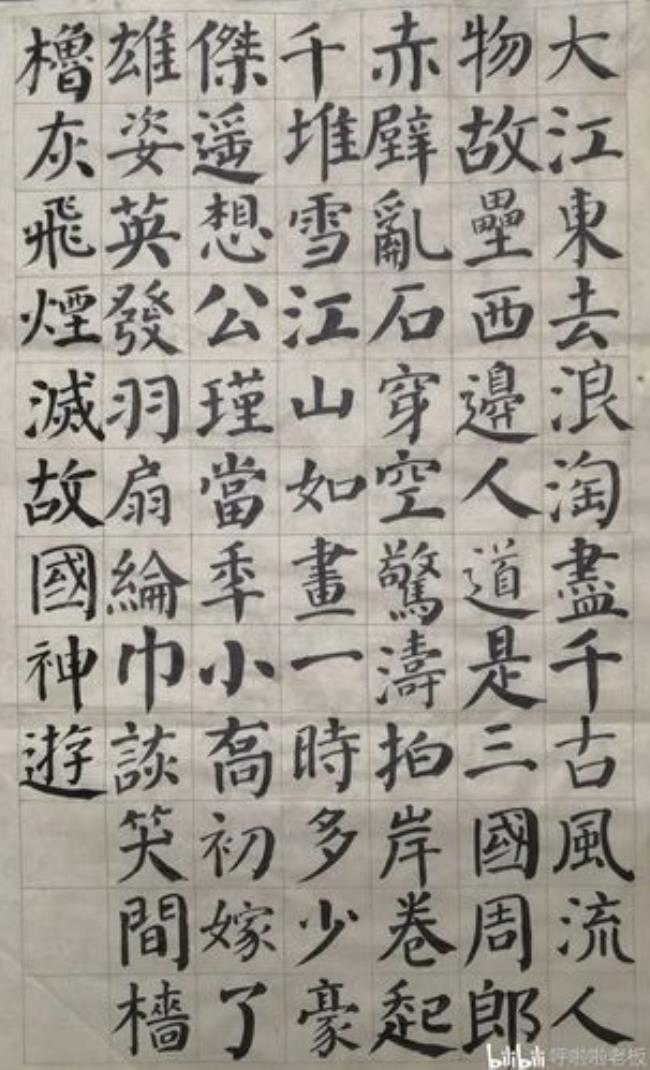 大江東去浪淘盡千古風流人
物故壘西邊人道是三國周郎
赤壁亂石穿空驚濤拍岸卷起
千堆雪江山如畫一時多少豪
傑遥想公瑾當季小喬初嫁了
雄姿英發羽扇綸巾談笑間檣
櫓灰飛煙滅故國神遊
bilibili 呼啦啦老板